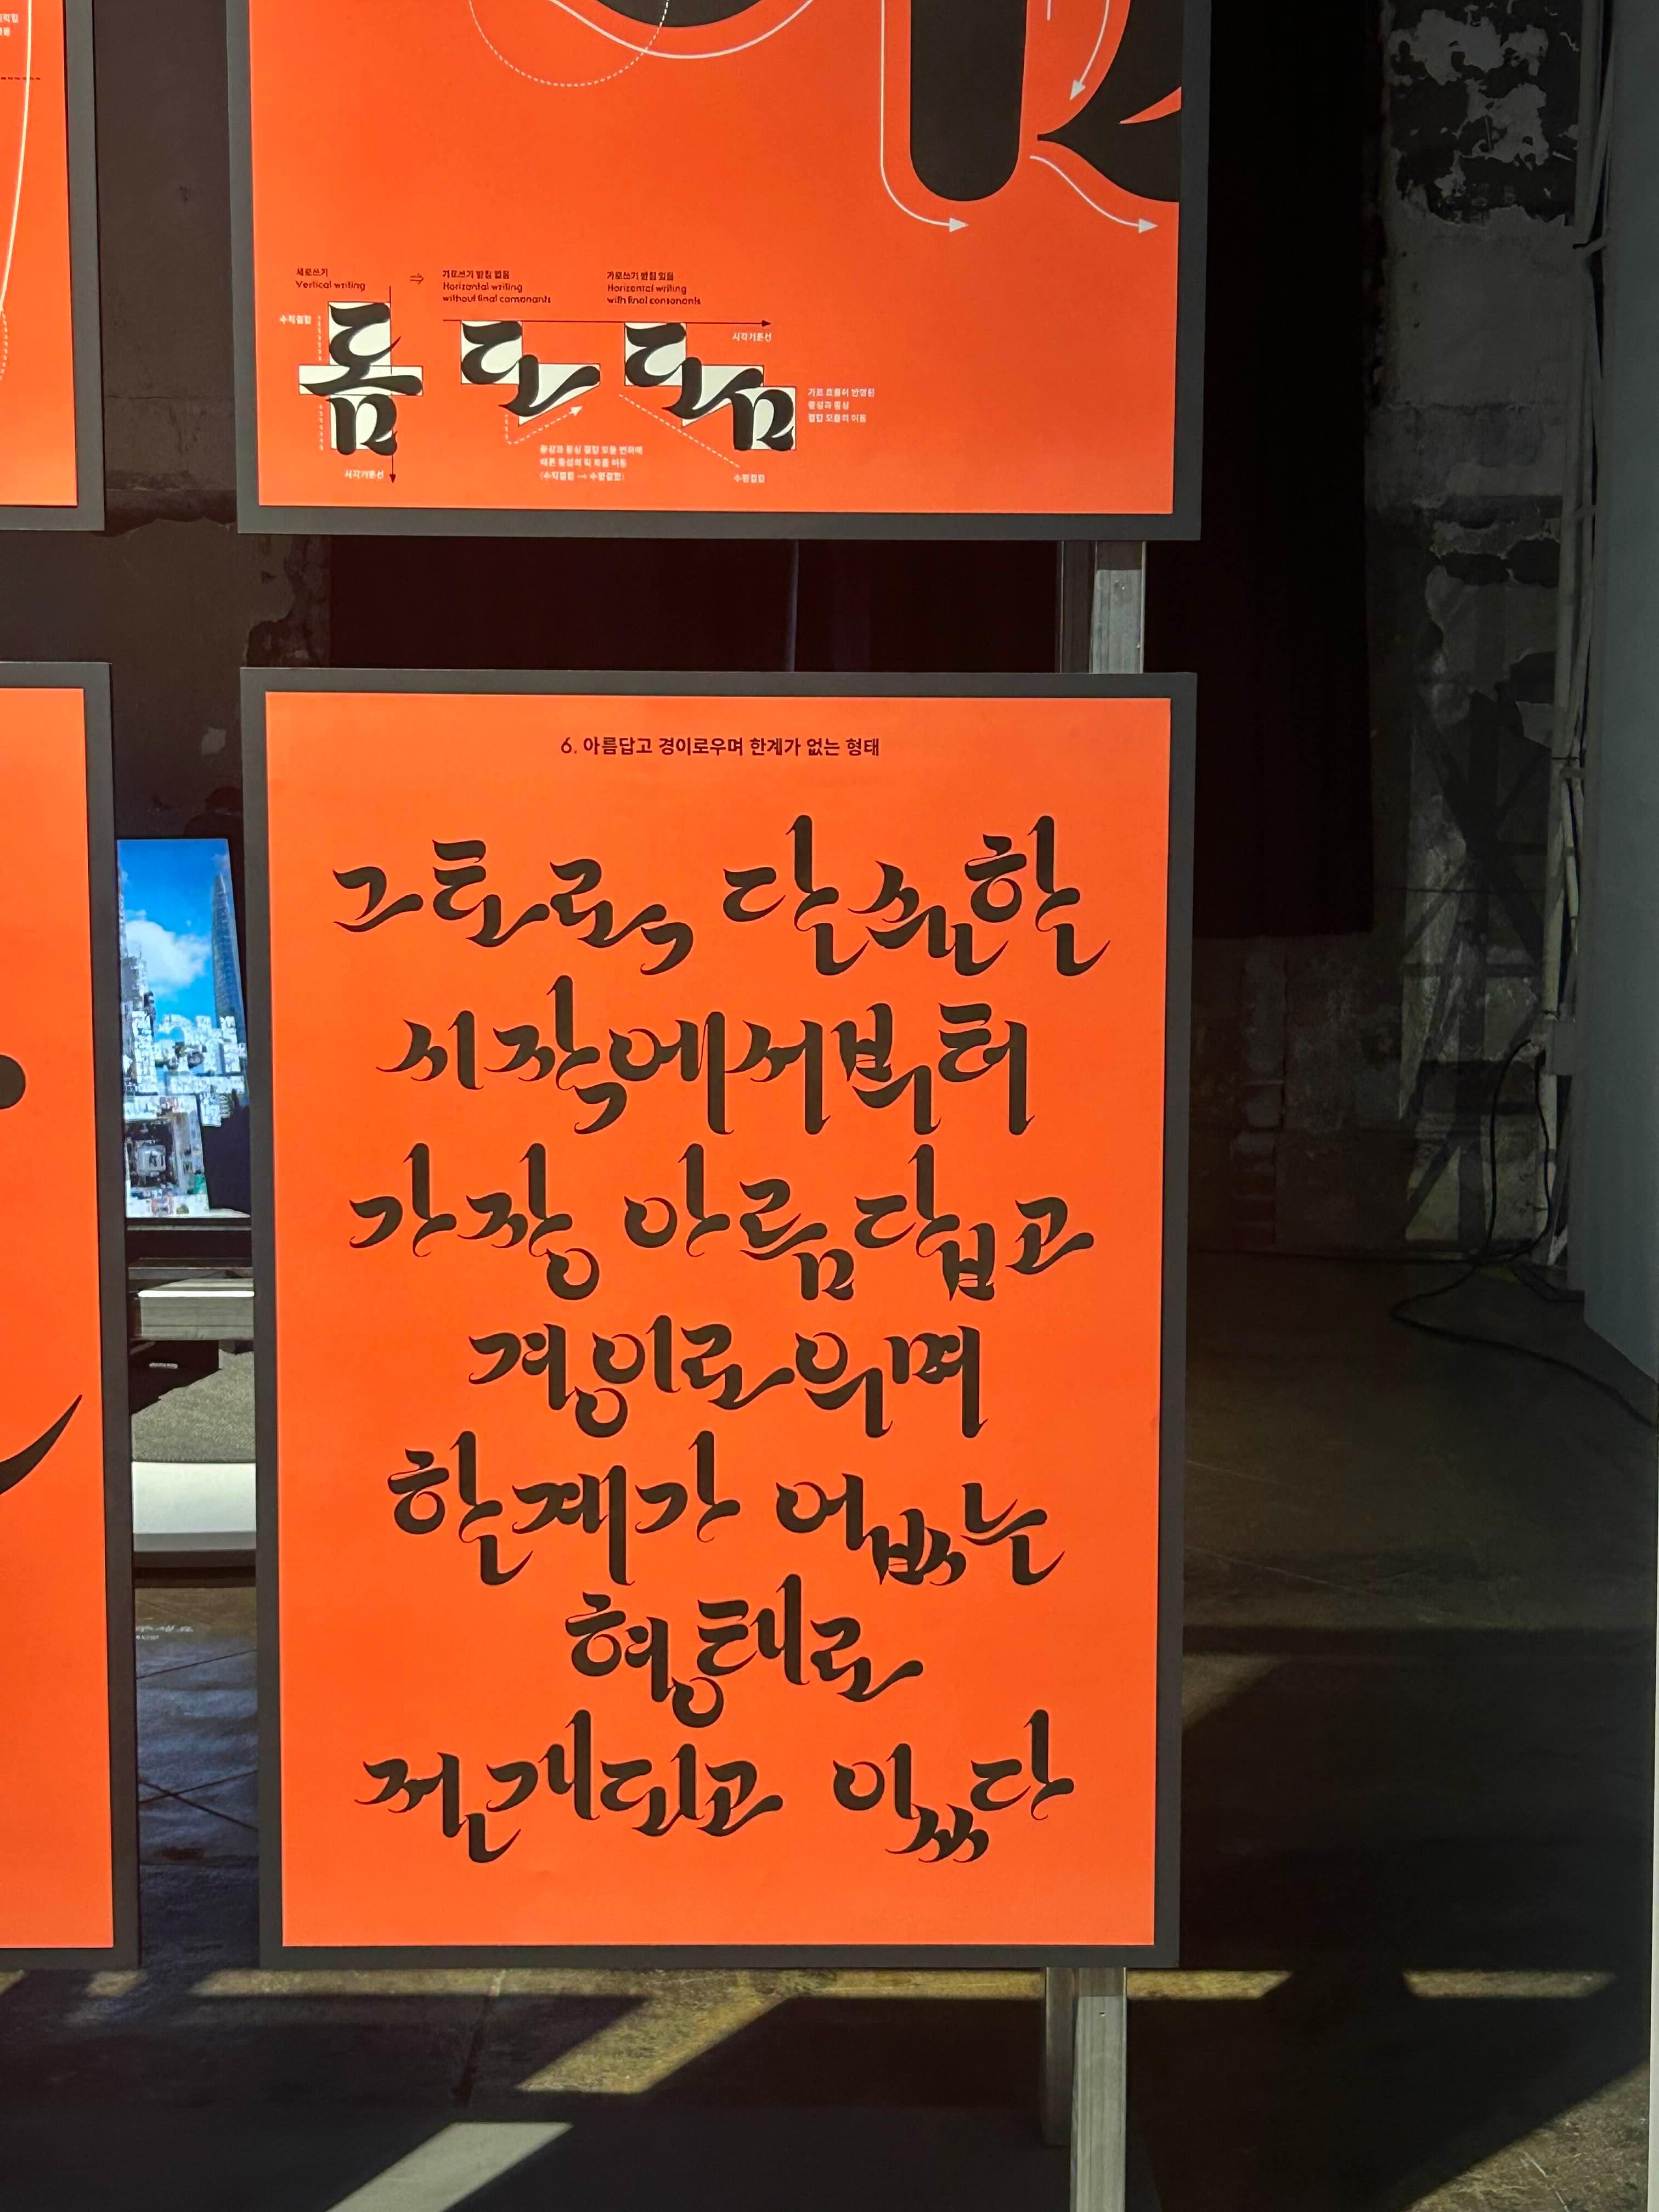 세로쓰기
Vertical writing
⇒
가로쓰기 받침 없음
Horizontal writing
without final consonants
가로쓰기 받침 있음
Horizontal writing
with final consonants
수직결합
시각기준선
롬 로 롬
가로 흐름이 반영된
중성과 종성
결합 모듈의 이동
중성과 종성 결합 모듈 변화에
따른 중성의 획 흐름 이동
(수직결합 → 수평결합)
시각기준선
수평결합
6. 아름답고 경이로우며 한계가 없는 형태
그토록 단순한
시작에서부터
가장 아름답고
경이로우며
한계가 없는
형태로
전개되고 있다